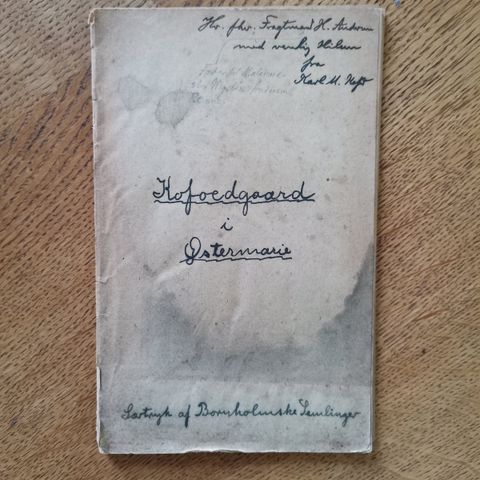 Hr. fhv. Fragtmand H. Andersen
med venlig Hilsen
fra
Karl M. Kofod
Kofoedgaard
i
Østermarie
Særtryk af Bornholmske Samlinger